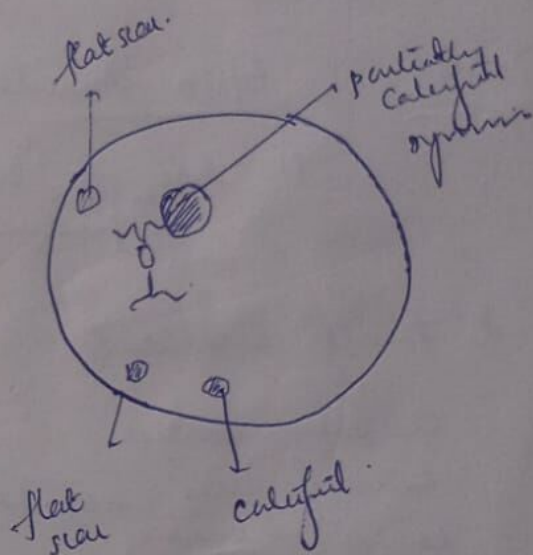 flat scar.
partially
calcified
flat
scar
calcified.